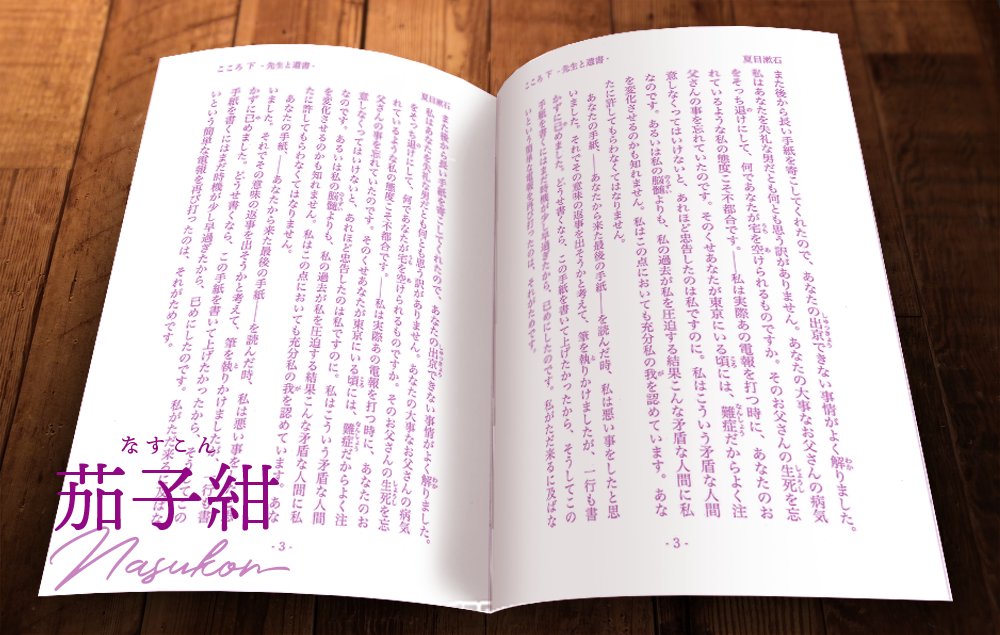 夏目漱石
こころ 下 -先生と遺書-
また後から長い手紙を寄こしてくれたので、あなたの出京できない事情がよく解りました。
私はあなたを失礼な男だとも何とも思う訳がありません。あなたの大事なお父さんの病気
をそっち退けにして、何であなたが宅を空けられるものですか。そのお父さんの生死を忘
れているような私の態度こそ不都合です。――私は実際あの電報を打つ時に、あなたのお
父さんの事を忘れていたのです。そのくせあなたが東京にいる頃には、難症だからよく注
意しなくってはいけないと、あれほど忠告したのは私ですのに。私はこういう矛盾な人間
なのです。あるいは私の脳髄よりも、私の過去が私を圧迫する結果こんな矛盾な人間に私
を変化させるのかも知れません。私はこの点においても充分私の我を認めています。あな
たに許してもらわなくてはなりません。
あなたの手紙、――あなたから来た最後の手紙――を読んだ時、私は悪い事をしたと思
いました。それでその意味の返事を出そうかと考えて、筆を執りかけましたが、一行も書
かずに已めました。どうせ書くなら、この手紙を書いて上げたかったから、そうしてこの
手紙を書くにはまだ時機が少し早過ぎたから、已めにしたのです。私がただ来るに及ばな
いという簡単な電報を再び打ったのは、それがためです。
- 3 -
夏目漱石
こころ 下 -先生と遺書-
また後から長い手紙を寄こしてくれたので、あなたの出京できない事情がよく解りました。
私はあなたを失礼な男だとも何とも思う訳がありません。あなたの大事なお父さんの病気
をそっち退けにして、何であなたが宅を空けられるものですか。そのお父さんの生死を忘
れているような私の態度こそ不都合です。――私は実際あの電報を打つ時に、あなたのお
父さんの事を忘れていたのです。そのくせあなたが東京にいる頃には、難症だからよく注
意しなくってはいけないと、あれほど忠告したのは私ですのに。私はこういう矛盾な人間
なのです。あるいは私の脳髄よりも、私の過去が私を圧迫する結果こんな矛盾な人間に私
を変化させるのかも知れません。私はこの点においても充分私の我を認めています。あな
たに許してもらわなくてはなりません。
あなたの手紙、――あなたから来た最後の手紙――を読んだ時、私は悪い事を
いました。それでその意味の返事を出そうかと考えて、筆を執りかけましたが、一行も書
かずに已めました。どうせ書くなら、この手紙を書いて上げたかったから、そうしてこの
手紙を書くにはまだ時機が少し早過ぎたから、已めにしたのです。私がただ来るに及ばな
いという簡単な電報を再び打ったのは、それがためです。
- 3 -
なすこん
茄子紺
Nasukon